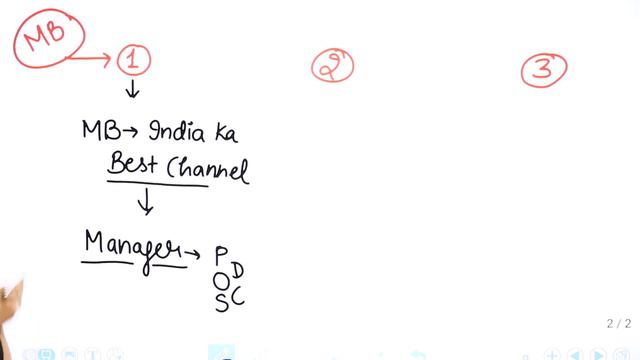 MB → 1
2
3
MB → India Ka
Best Channel
Manager → P
D
O
C
S
2 / 2